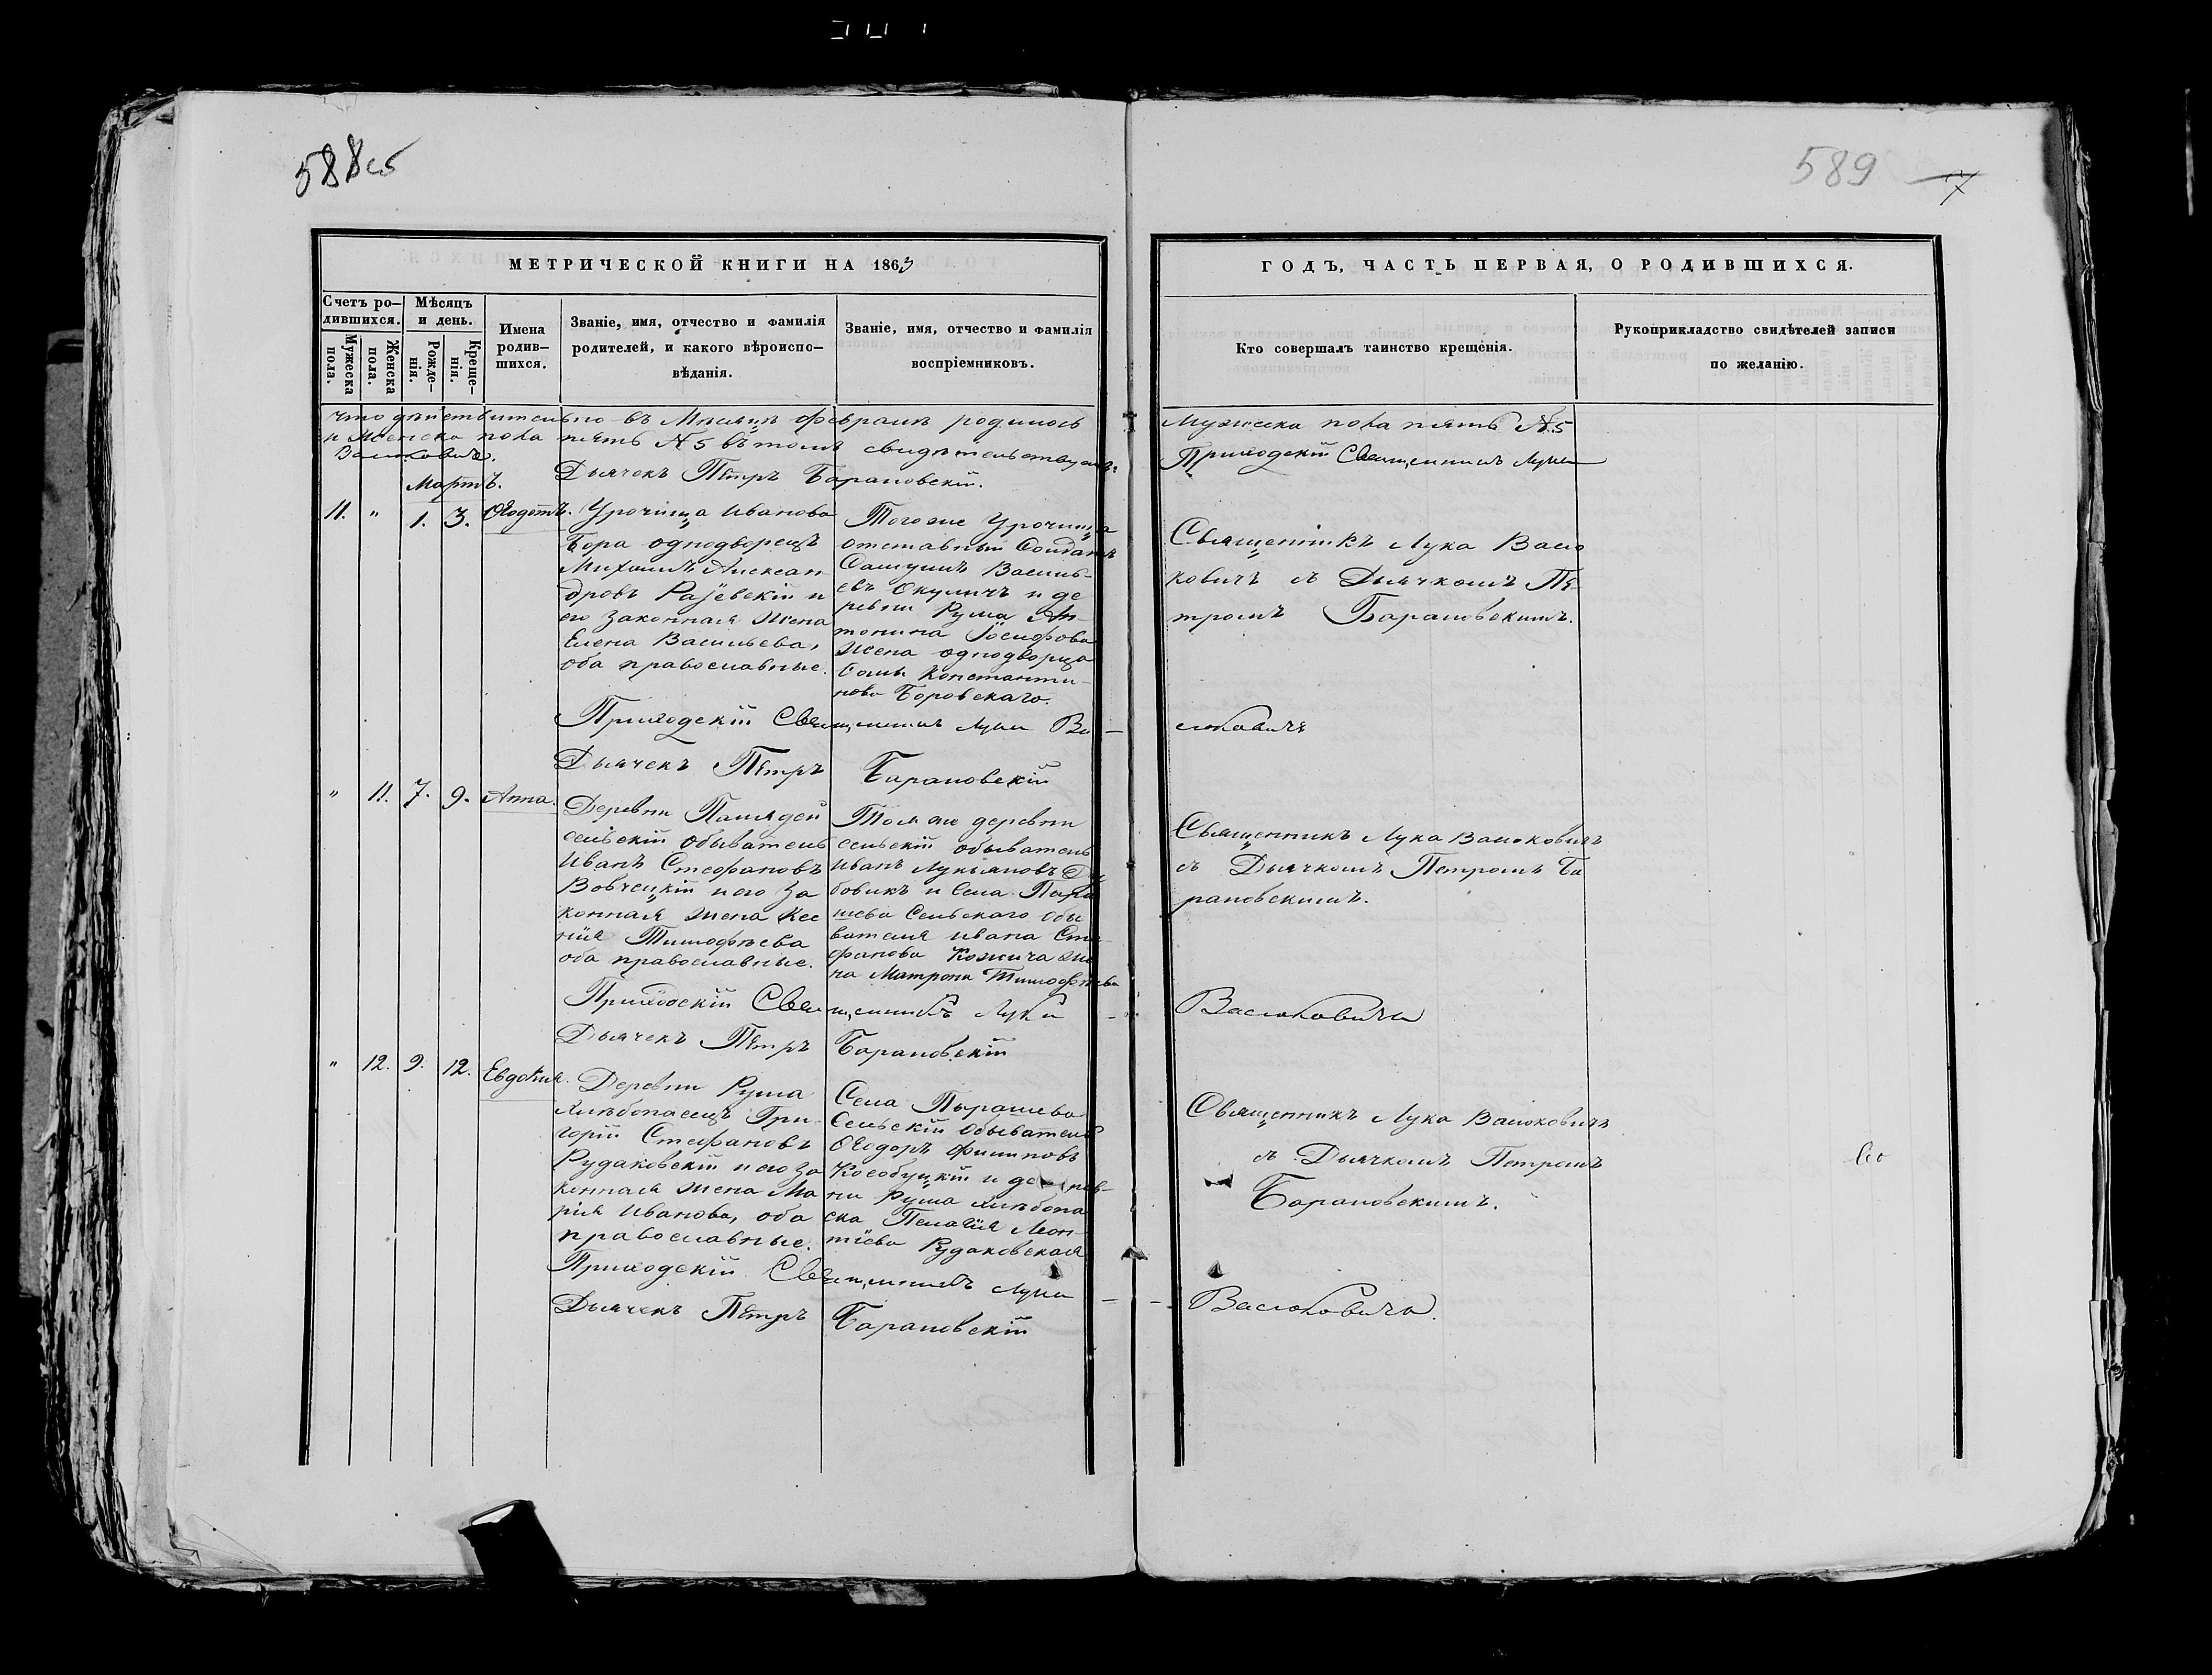 588об
589 7
МЕТРИЧЕСКОЙ КНИГИ НА 1863
ГОДЪ, ЧАСТЬ ПЕРВАЯ, О РОДИВШИХСЯ.
Счетъ ро-
дившихся.
Мужеска
пола.
Женска
пола.
Мѣсяцъ
и день.
Рожде-
нія.
Креще-
нія.
Имена
родив-
шихся.
Званіе, имя, отчество и фамилія
родителей, и какого вѣроиспо-
вѣданія.
Званіе, имя, отчество и фамилія
воспріемниковъ.
Кто совершалъ таинство крещенія.
Рукоприкладство свидѣтелей записи
по желанію.
что дѣйствительно въ Мѣсяцѣ Февралѣ родилось
Мужеска пола пять №5
и Женска пола пять №5 въ томъ свидѣтельствуемъ
Приходскій Священникъ Лука
Васюковичъ.
Дьячекъ Пётръ Барановскій.
Мартъ.
11. " 1. 3. Ѳеодотъ.
Урочища Иванова
Бора однодворецъ
Михаилъ Алексан
дровъ Раевскій и
его законная жена
Елена Васильева,
оба православные.
Того же Урочища
отставный Солдатъ
Васильевъ
Окуличъ и де
ревни Рума Ан-
тонина Іосифова
жена однодворца
Константи-
нова Боровскаго.
Священникъ Лука Васю
ковичъ съ Дьячкомъ Пе-
тромъ Барановскимъ.
Приходскій Священникъ Лука Ва-
сюковичъ
Дьячекъ Пётръ Барановскій
" 11. 7. 9. Анна.
Деревни
сельскій обыватель
Иванъ Стефановъ
Вовчецкій и его за
конная жена Ксе
нія Тимофѣева
оба православные.
Тоя же деревни
сельскій обыватель
Иванъ Лукьяновъ Ду
бовикъ и Села Пыра
шева Сельскаго обы
вателя Ивана Сте-
фанова же
на Матрона Тимофѣева
Священникъ Лука Васюковичъ
съ Дьячкомъ Петромъ Ба
рановскимъ.
Приходскій Священникъ Лука
Васюковичъ
Дьячекъ Пётръ Барановскій
" 12. 9. 12. Евдокія.
Деревни Рума
хлѣбопашецъ Гри-
горій Стефановъ
Рудаковскій и его за
конная жена Ма
рія Иванова, оба
православные.
Села Пырашева
Сельскій обыватель
Ѳеодоръ Филиповъ
Кособуцкій и дерев-
ни Рума хлѣбопа
Пелагія Леон-
тіева Рудаковская
Священникъ Лука Васюковичъ
съ Дьячкомъ Петромъ
Барановскимъ.
Приходскій Священникъ Лука
Васюковичъ.
Дьячекъ Пётръ Барановскій